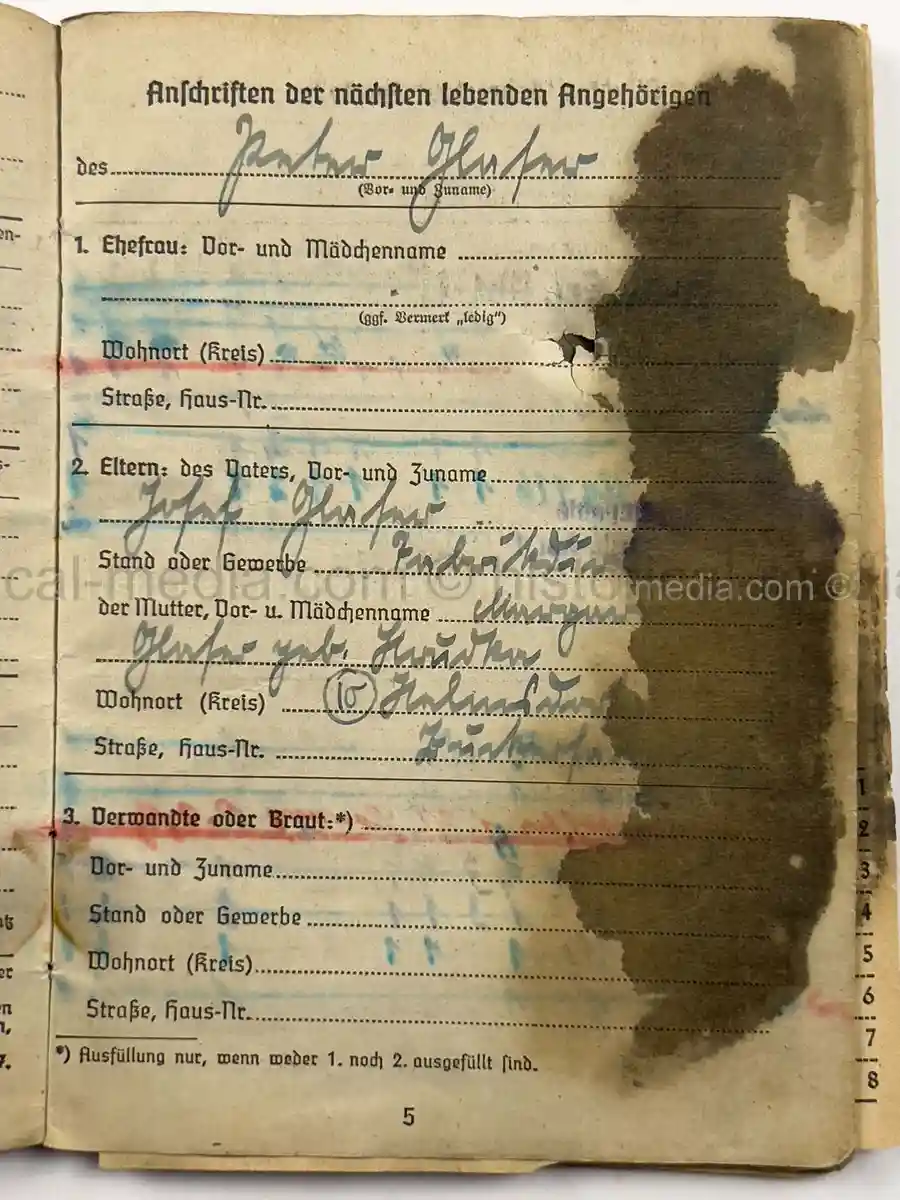 Anschriften der nächsten lebenden Angehörigen
des Peter Glaser
(Vor- und Zuname)
1. Ehefrau: Vor- und Mädchenname
(ggf. Vermerk „ledig“)
Wohnort (Kreis)
Straße, Haus-Nr.
2. Eltern: des Vaters, Vor- und Zuname
Josef Glaser
Stand oder Gewerbe
der Mutter, Vor- u. Mädchenname
Glaser geb.
Wohnort (Kreis)
Straße, Haus-Nr.
cal-media.com © histomedia.com ©
3. Verwandte oder Braut:*)
Vor- und Zuname
Stand oder Gewerbe
Wohnort (Kreis)
Straße, Haus-Nr.
*) Ausfüllung nur, wenn weder 1. noch 2. ausgefüllt sind.
5
1
2
3
4
5
6
7
8